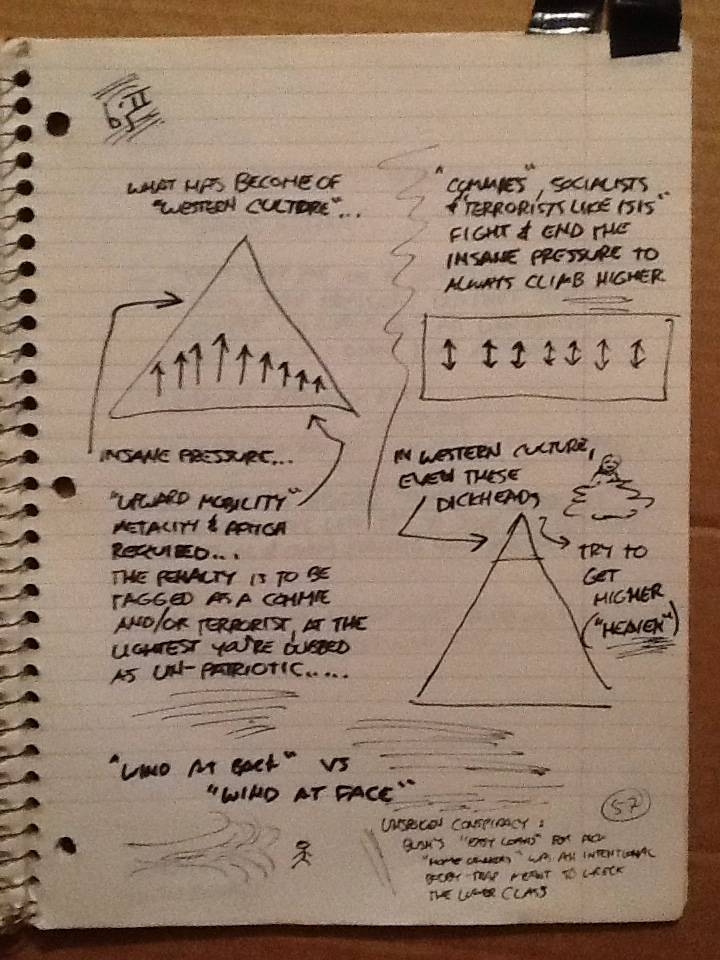 WHAT HAS BECOME OF
"WESTERN CULTURE"...
INSANE PRESSURE...
"UPWARD MOBILITY"
METALITY &
REQUIRED...
THE PENALTY IS TO BE
TAGGED AS A COMMIE
AND/OR TERRORIST, AT THE
LIGHTEST YOU'RE DUBBED
AS UN-PATRIOTIC.....
"COMMIES", SOCIALISTS
& "TERRORISTS LIKE ISIS"
FIGHT & END THE
INSANE PRESSURE TO
ALWAYS CLIMB HIGHER
IN WESTERN CULTURE,
EVEN THESE
DICKHEADS
TRY TO
GET
HIGHER
("HEAVEN")
"WIND AT BACK" VS
"WIND AT FACE"
57
UNSPOKEN CONSPIRACY:
BUSH'S "EASY LOANS" FOR NEW
"HOME OWNERS" WAS AN INTENTIONAL
BOOBY-TRAP MEANT TO WRECK
THE LOWER CLASS